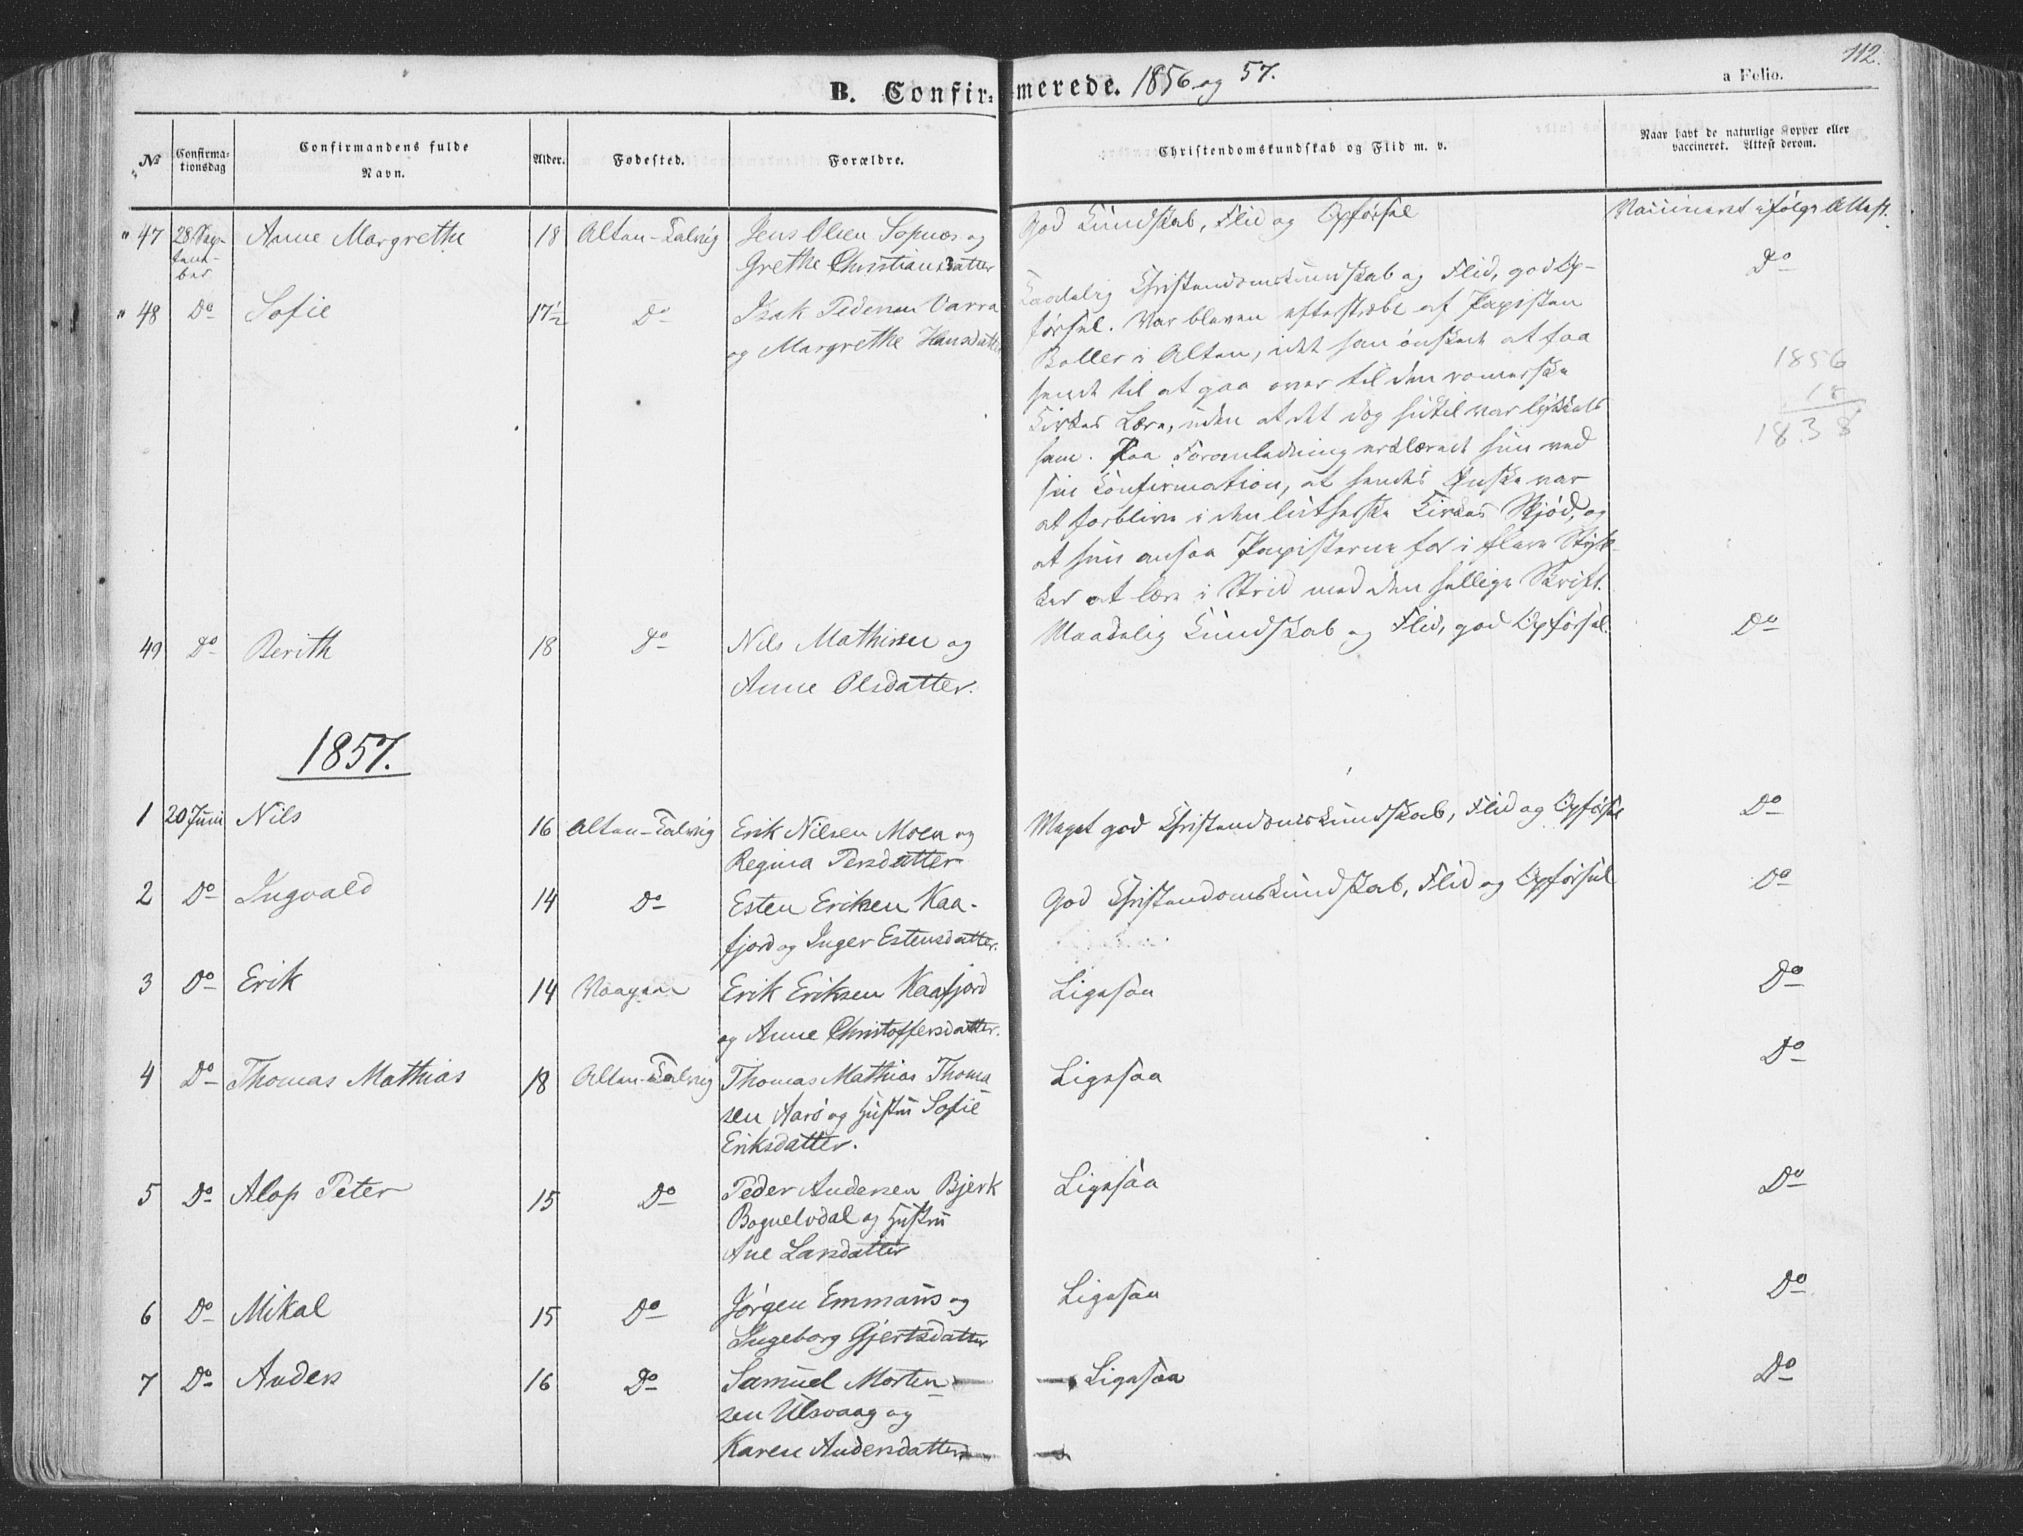 112.
B. Confirmerede. 1856 og 57.
a Folio.
№
Confirmationsdag
Confirmandens fulde Navn.
Alder.
Fødested.
Forældre.
Christendomskundskab og Flid m. v.
Naar havt de naturlige Kopper eller vaccineret. Attest derom.
" 47 28 September Anne Margrethe 18 Alten-Talvig Jens Olsen Sopnæs og God Kundskab, Flid og Opførsel Vaccineret ifølge Attest.
Grethe Christiansdatter
" 48 Do Sofie 17½ Do Isak Pedersen Varra Maadelig Christendomskundskab og Flid, god Op- Do
og Margrethe Hansdatter førsel. Var bleven efterstræbt af Papisten
Boller i Alten, idet han ønskede at faa
hende til at gaa over til den romerske 1856
Kirkes Lære, uden at det dog hidtil var lykkets 18
ham. Paa Foranledning erklærede hun ved 1838
sin Confirmation, at hendes Ønske var
at forblive i den lutherske Kirkes Skjød, og
at hun ansaa Papisterne for i flere Styk-
ker at lære i Strid med den hellige Skrift.
49 Do Berith 18 Do Nils Mathisen og Maadelig Kundskab og Flid, god Opførsel. Do
Anne Olsdatter.
1857.
1 20 Juni Nils 16 Alten-Talvig Erik Nilsen Moen og Meget god Christendomskundskab, Flid og Opførsel Do
Regina Persdatter
2 Do Ingvald 14 Do Esten Eriksen Kaa- God Christendomskundskab, Flid og Opførsel Do
fjord og Inger Estensdatter.
3 Do Erik 14 Vaagan Erik Eriksen Kaafjord Ligesaa Do
og Anne Christoffersdatter.
4 Do Thomas Mathias 18 Alten-Talvig Thomas Mathias Thoma Ligesaa Do
sen Aarø og Hustru Sofie
Eriksdatter.
5 Do Alop Peter 15 Do Peder Andersen Bjerk Ligesaa Do
Bognelvdal og Hustru
Ane Larsdatter
6 Do Mikal 15 Do Jørgen Emmaus og Ligesaa Do
Ingeborg Gjertsdatter
7 Do Anders 16 Do Samuel Morten Ligesaa Do
sen Ulsvaag og
Karen Andersdatter